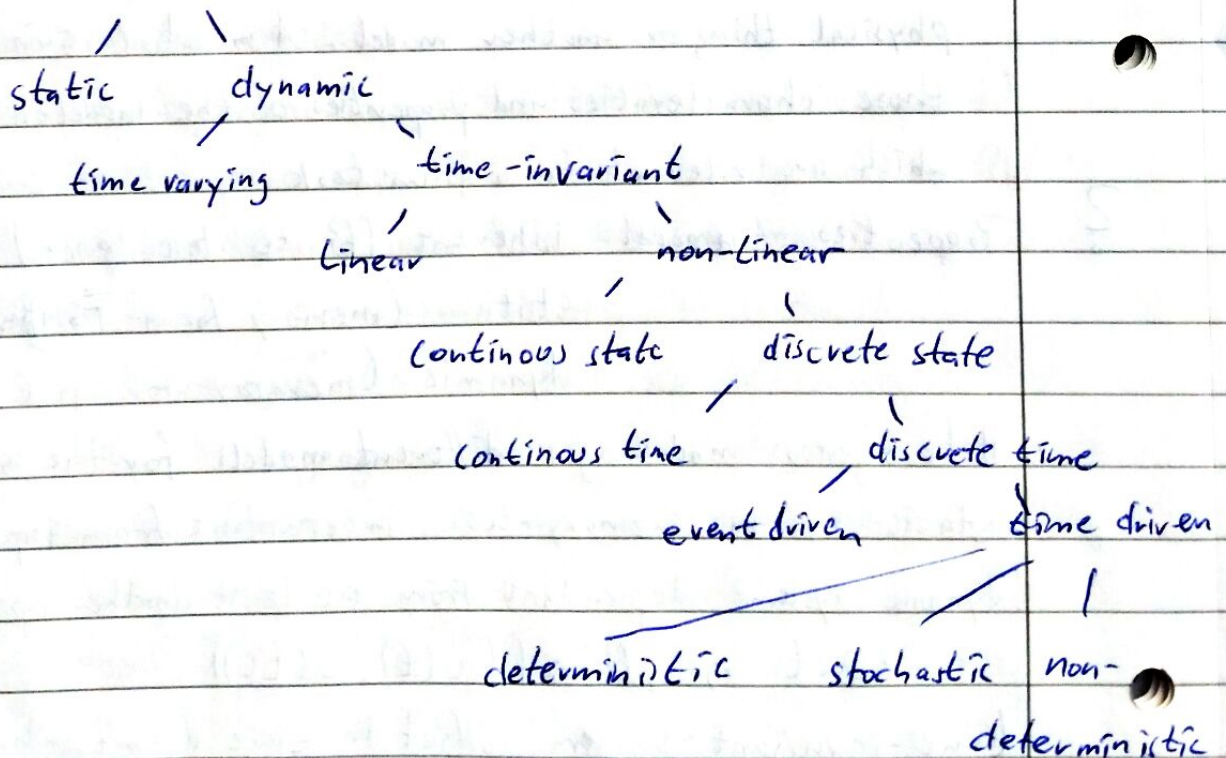 static dynamic
time varying time-invariant
Linear non-Linear
continous state discrete state
continous time discrete time
event driven time driven
deterministic stochastic non-
deterministic